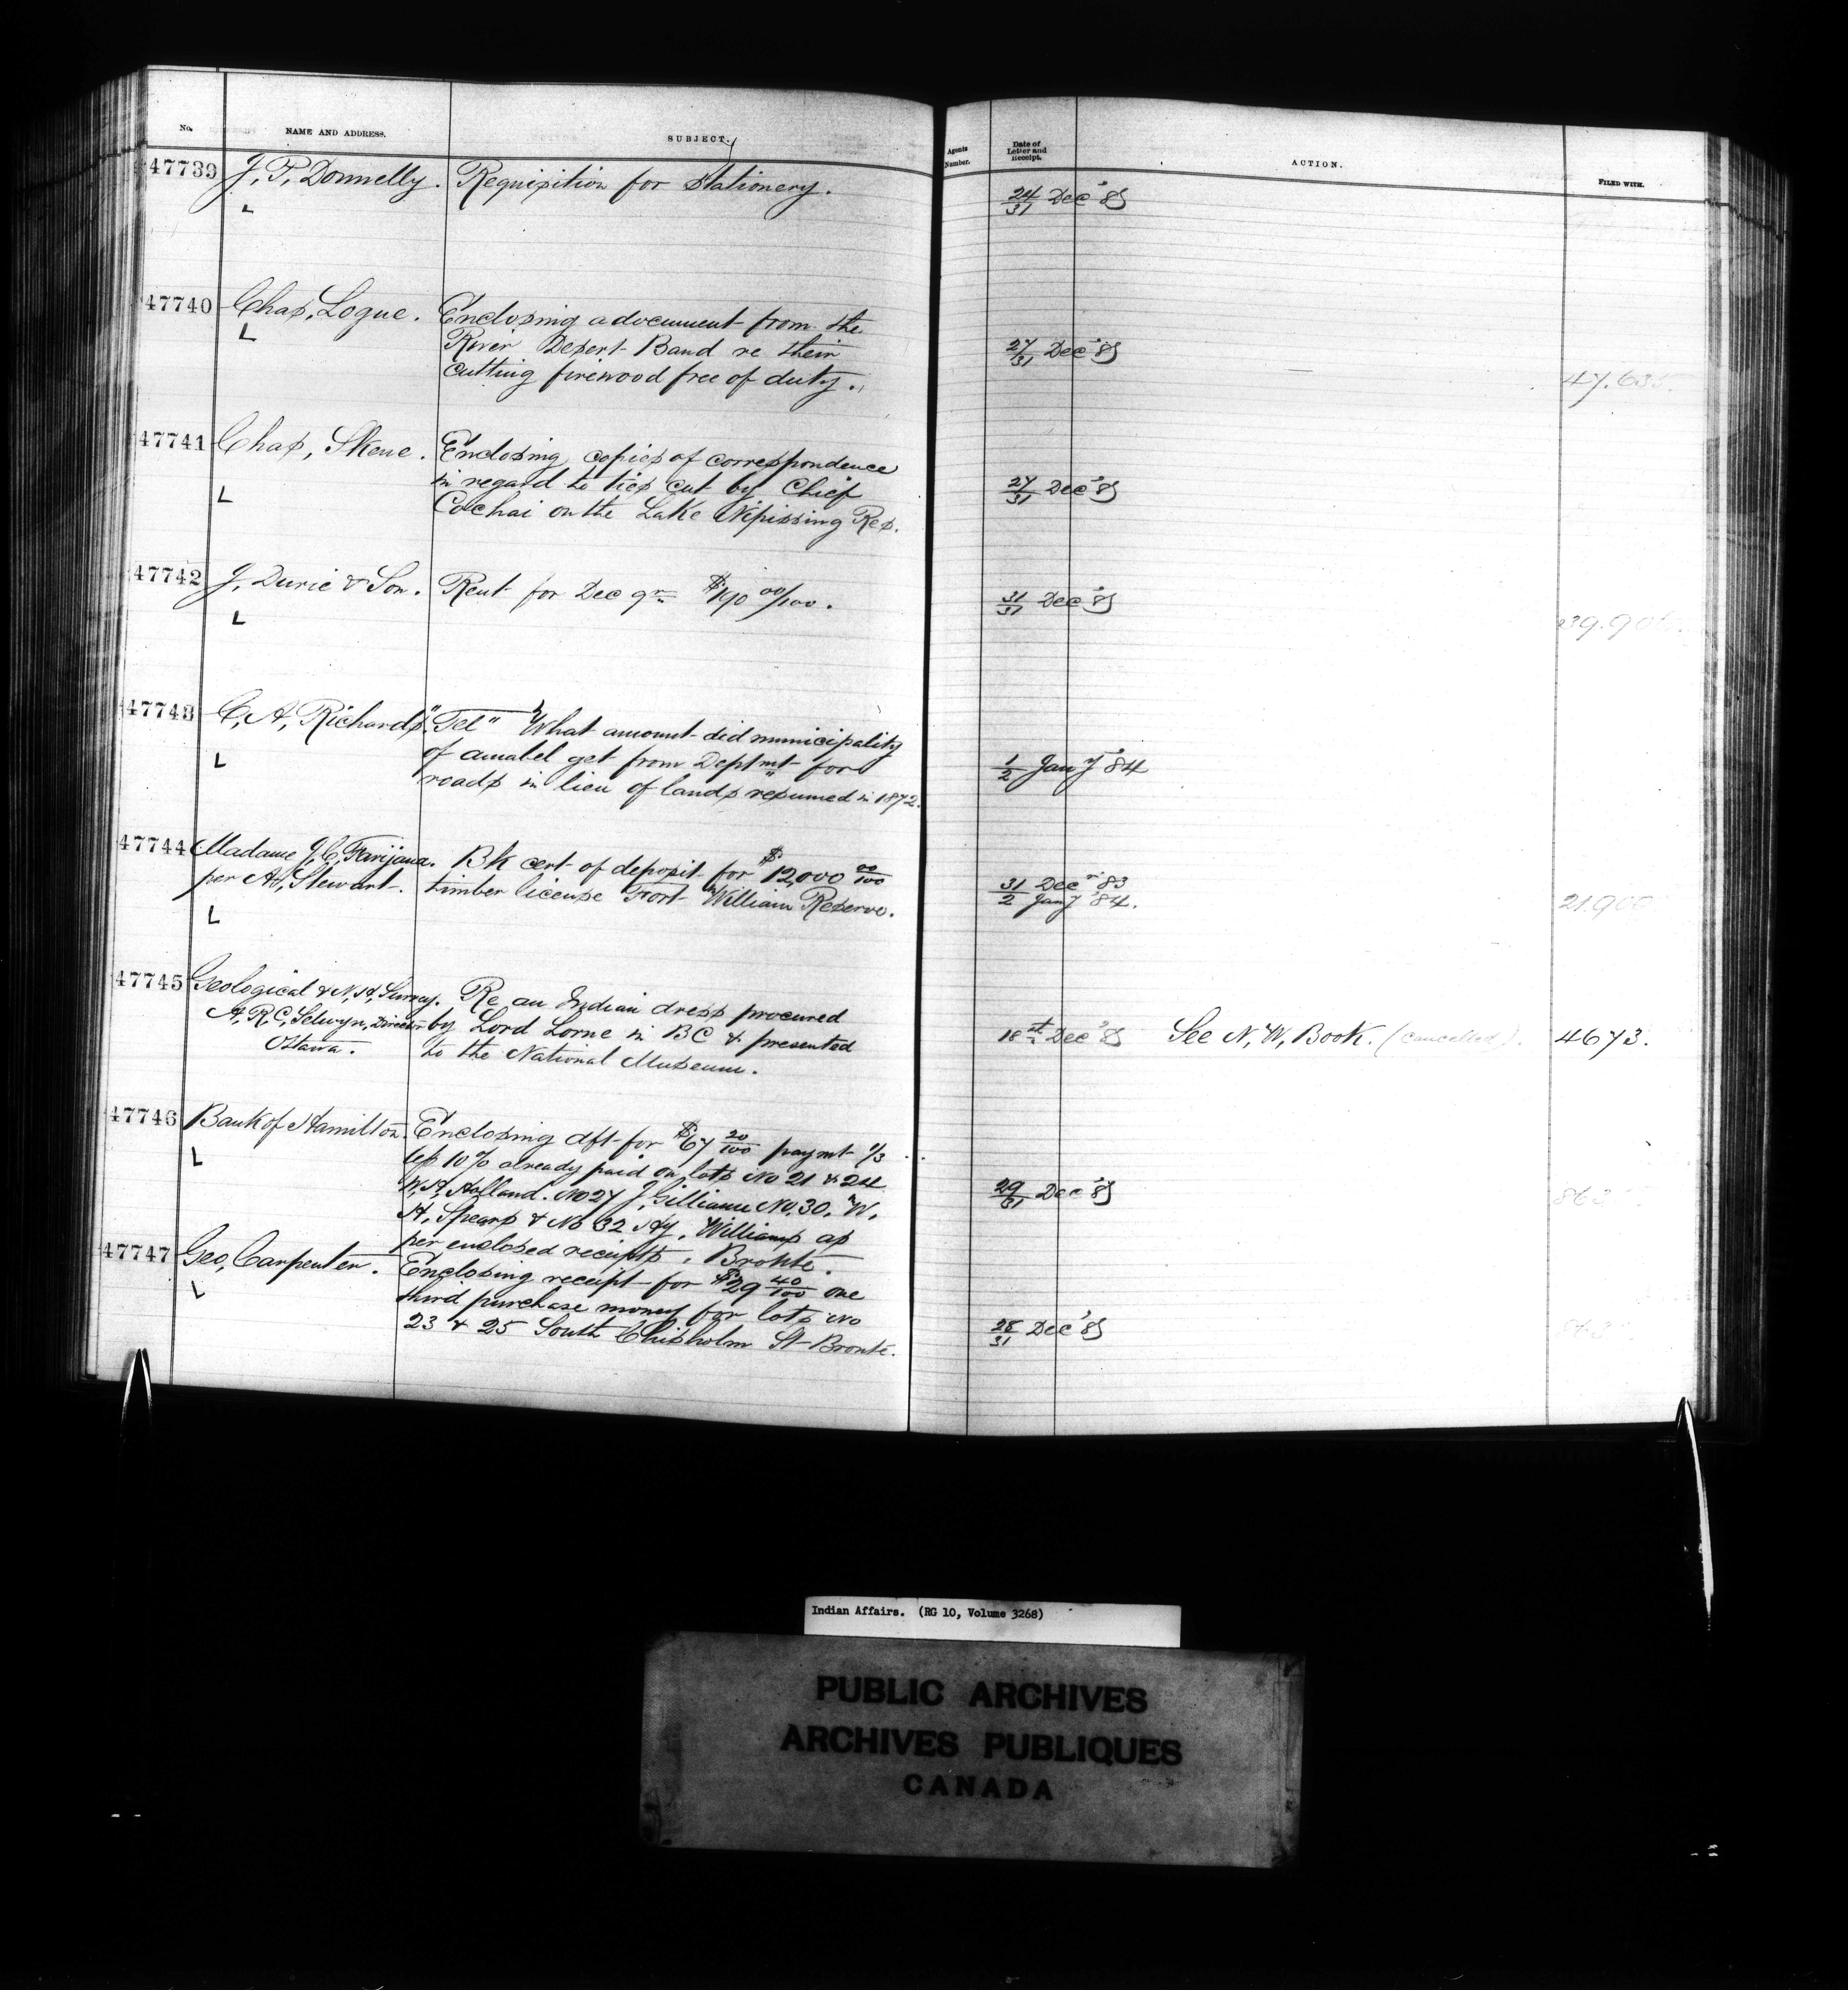 No. NAME AND ADDRESS. SUBJECT. Agents Number. Date of Letter and Receipt. ACTION. FILED WITH.
47739 J. P. Donnelly. Requisition for Stationery. 24/31 Dec '83
L
47740 Chas, Logue. Enclosing a document from the
L River Desert Band re their 27/31 Dec '83
cutting firewood free of duty. 47.635.
47741 Chas, Skene. Enclosing copies of correspondence
L in regard to ties cut by Chief 27/31 Dec '83
Cochai on the Lake Nipissing Res.
47742 J, Durie & Son. Rent for Dec qr $190 00/100. 31/31 Dec '83
L
47743 C, A, Richards. "Tel" What amount did municipality
L of amabel get from Deptmt for 1/2 Jany '84
roads in lieu of lands resumed in 1872.
47744 Madame J, C, . Bk cert of deposit for $12,000 00/100 31 Decr 83
per A, Stewart. timber license Fort William Reserve. 2 Jany '84.
L
47745 Geological & N, H, Survey. Re an Indian dress procured
A, R, C, Selwyn, Director by Lord Lorne in BC & presented 18 Dec '83 See N, W, Book. (cancelled). 4673.
Ottawa. to the National Museum.
47746 Bank of Hamilton. Enclosing dft for $67 20/100 paymt 1/3
L less 10% already paid on lots No 21 & 24
W, H, Holland. No 27 J, No, 30. W, 29/31 Dec '83
H, Spears & No 32 Hy, Williams as
per enclosed receipts, Bronte.
47747 Geo, Carpenter. Enclosing receipt for $29 40/100 one
L third purchase money for lots No
23 & 25 South Chisholm St Bronte. 28/31 Dec '83
Indian Affairs. (RG 10, Volume 3268)
PUBLIC ARCHIVES
ARCHIVES PUBLIQUES
CANADA